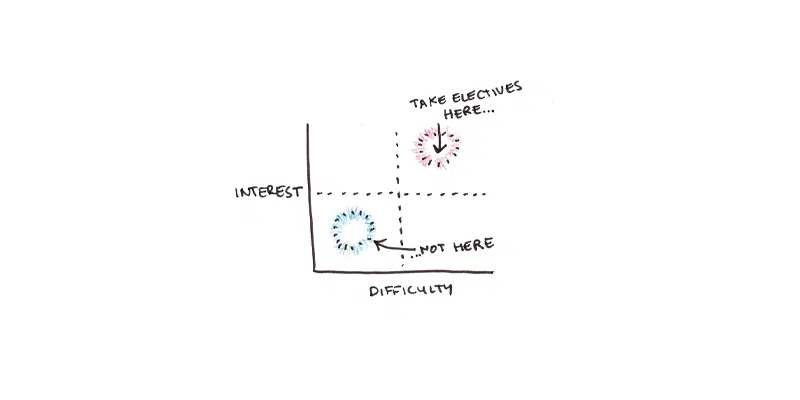 TAKE ELECTIVES
HERE...
INTEREST
...NOT HERE
DIFFICULTY